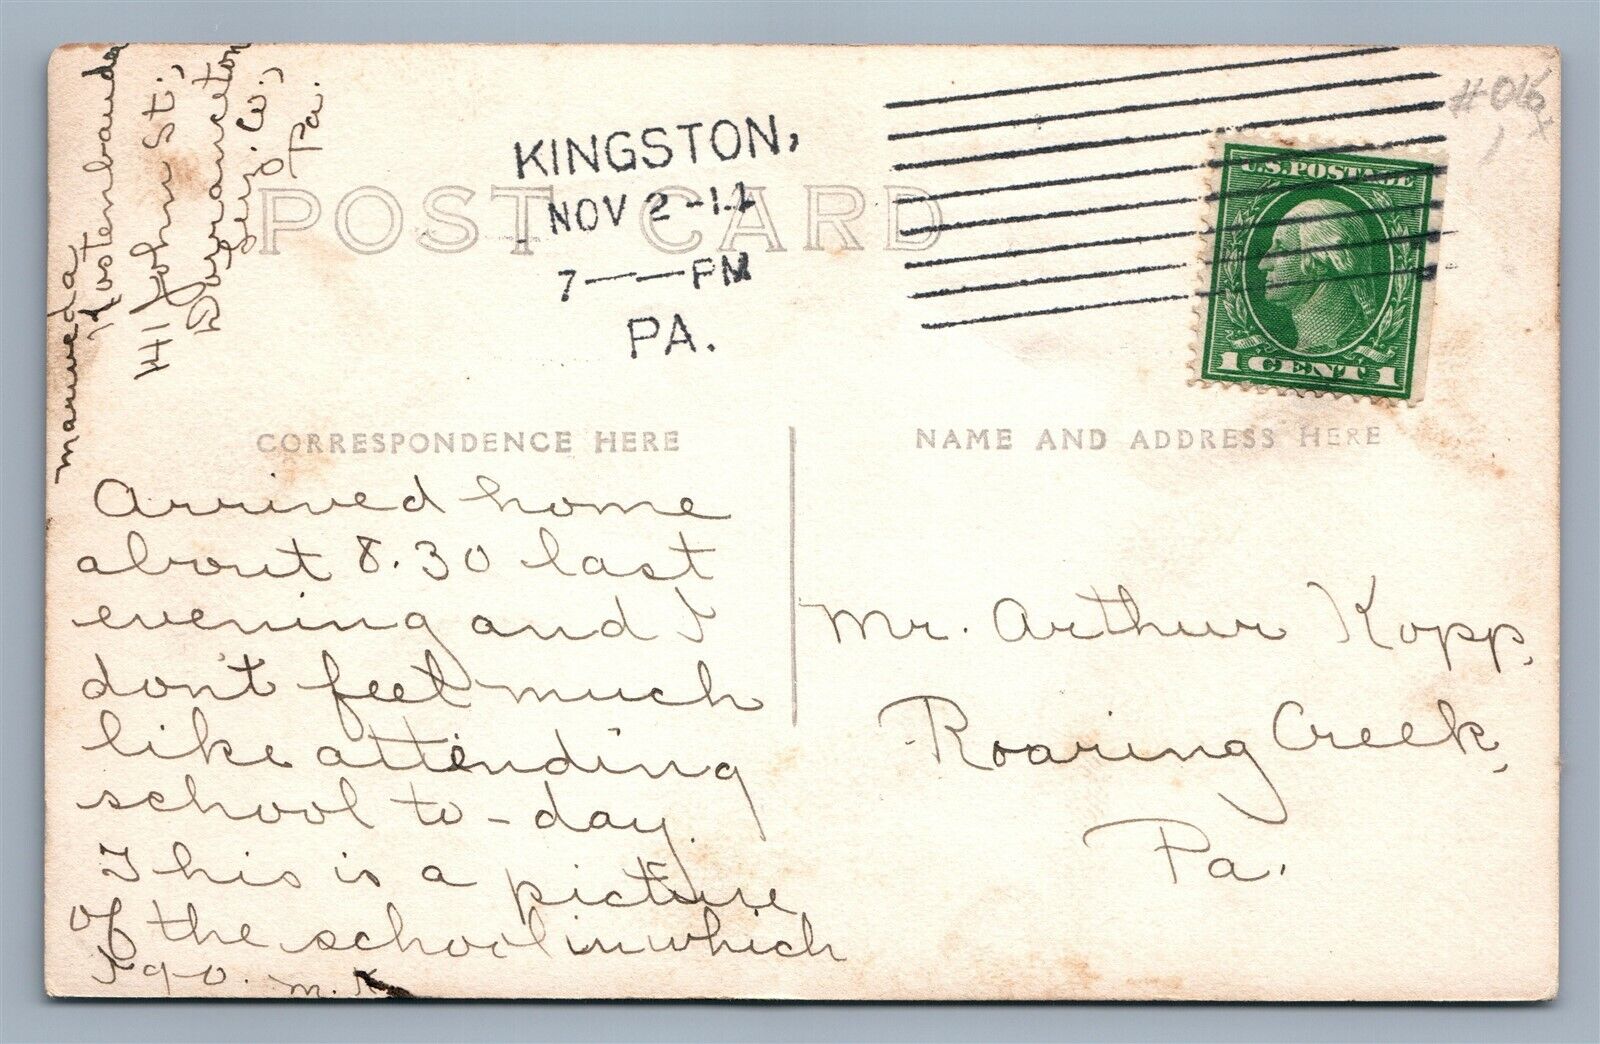 Marveda
Kostenbauder
41 John St.,
Dorranceton
Luz. Co.,
Pa.
POST CARD
KINGSTON,
NOV 2-11
7——PM
PA.
U.S. POSTAGE
1 CENT 1
CORRESPONDENCE HERE
NAME AND ADDRESS HERE
Arrived home
about 8.30 last
evening and I
don't feel much
like attending
school to-day.
This is a picture
of the school in which
I go. M. K.
Mr. Arthur Kopp,
Roaring Creek,
Pa.